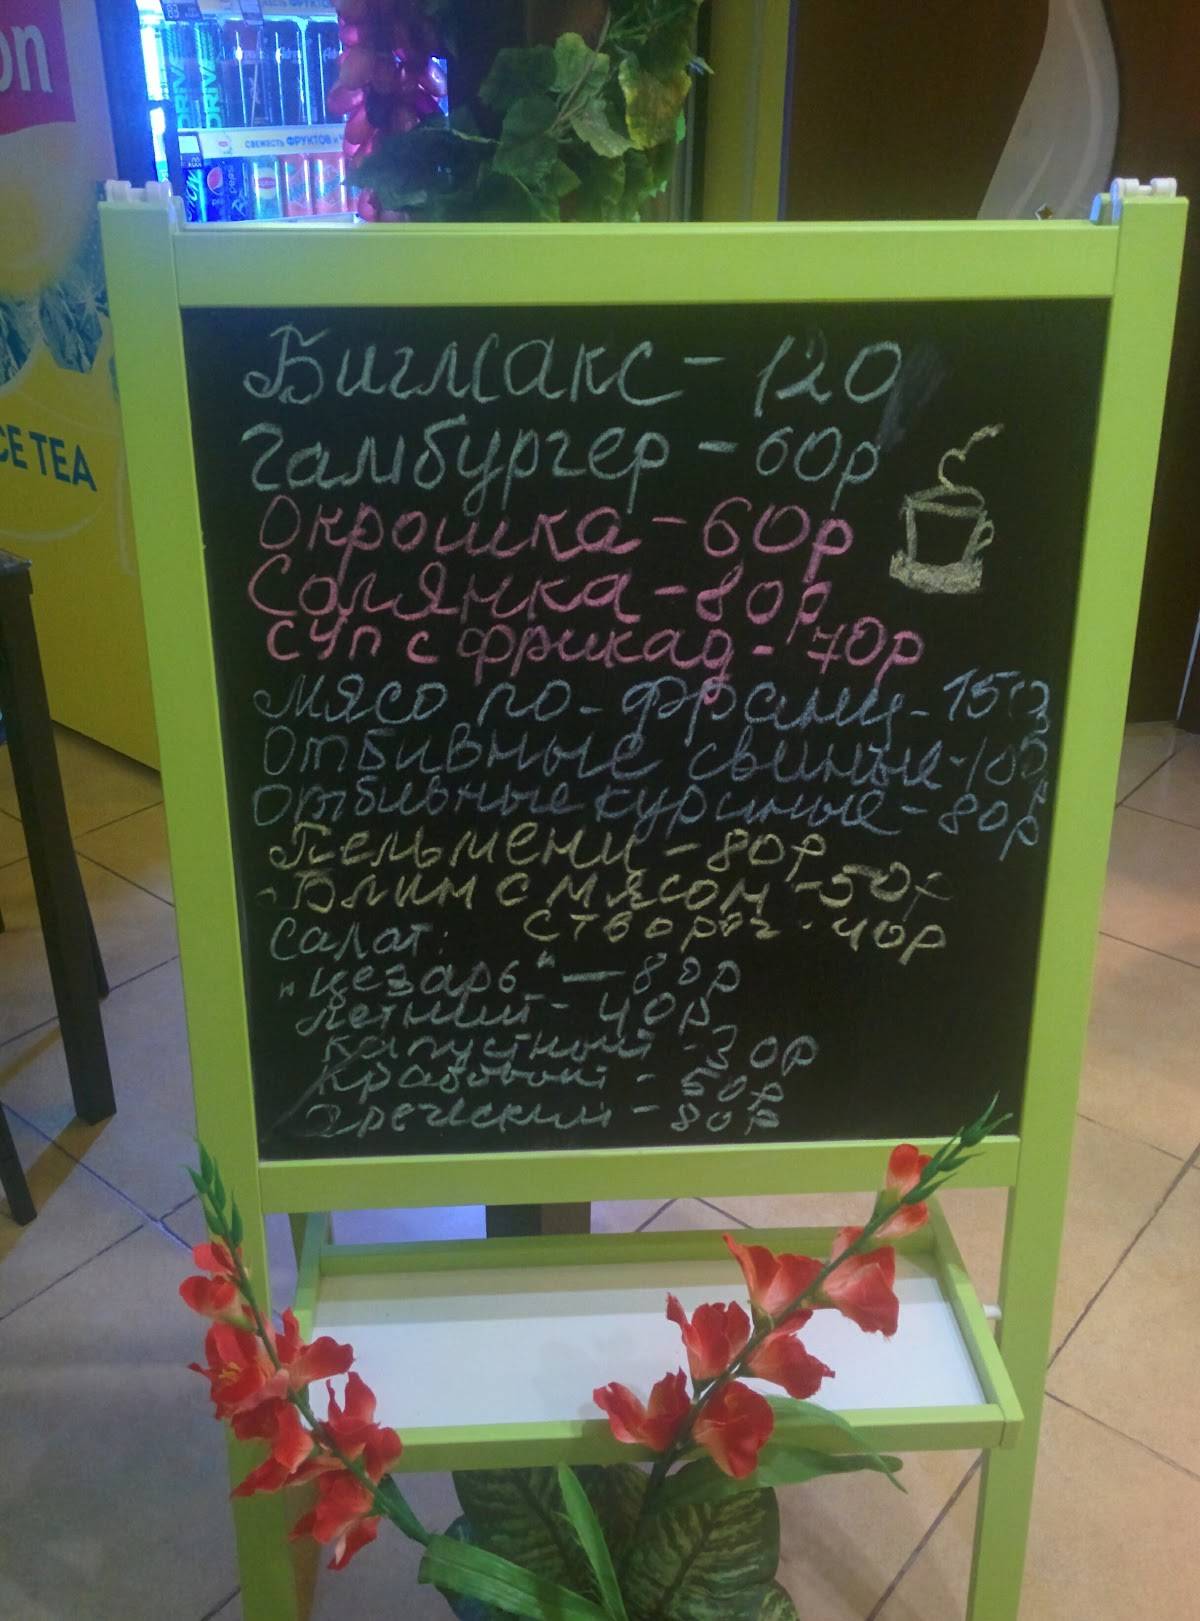 on
DRIVE
DRIVE
СВЕЖЕСТЬ ФРУКТОВ И
pepsi
ICE TEA
Бигмакс - 120
Гамбургер - 60р
Окрошка - 60р
Солянка - 80р
суп с фрикад - 70р
Мясо по-франц - 150
Отбивные свиные - 100
Отбивные куриные - 80р
Пельмени - 80р
- Блин с мясом - 50р
с творог - 40р
Салат:
"Цезарь" - 80р
Летний - 40р
капустный - 30р
Крабовый - 50р
Греческий - 80р